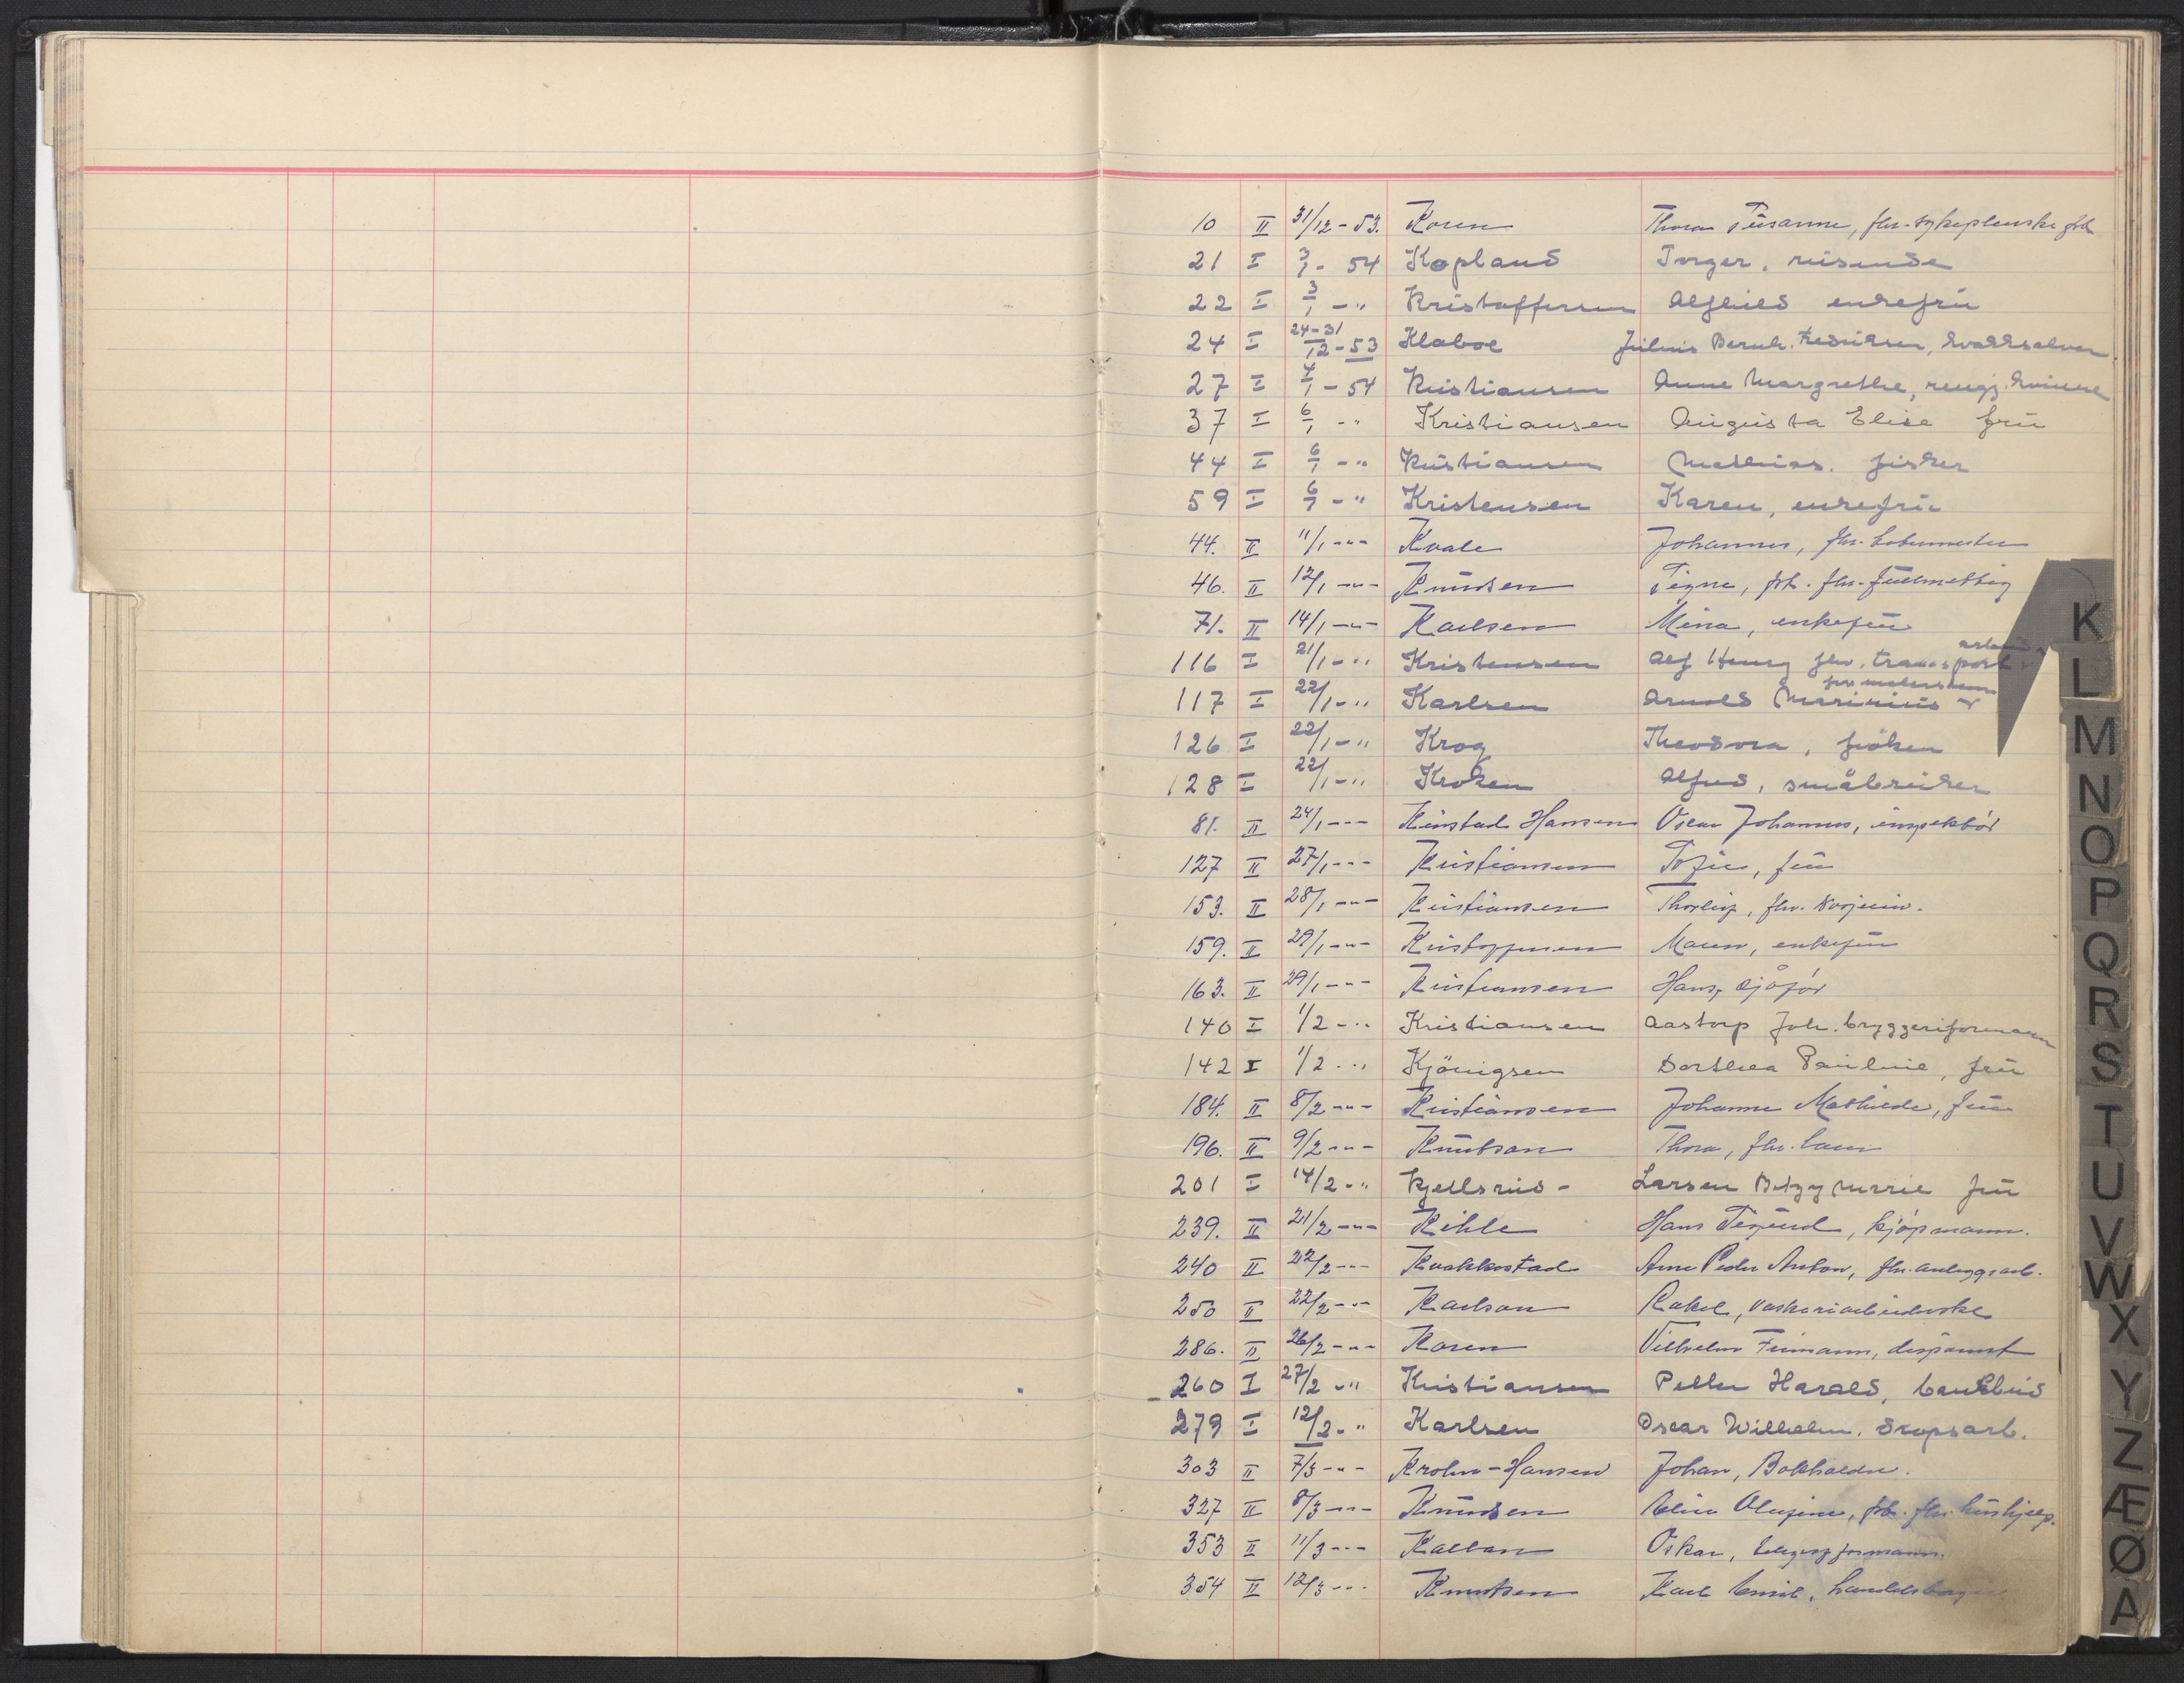 10 II 31/12-53. Koren Thora Susanne, fhv. sykepleierske frk
21 I 3/1- 54 Kopland Torger, reisende
22 I 3/1 - " Kristoffersen Alfhild enkefru
24 I 24-31/12-53 Klaboe Julius Bernh. Fredriksen, kvakksalver
27 I 4/1 - 54 Kristiansen Anne Margrethe, rengj. kvinne
37 I 6/1 - " Kristiansen Augusta Elise fru
44 I 6/1 - " Kristiansen Mathias. fisker
59 I 6/1 - " Kristensen Karen, enkefru
44. II 11/1 -"- Kvale Johannes, fhv.
46. II 12/1 -"- Knudsen Signe, frk. fhv. fullmektig
71. II 14/1 -"- Karlsen Mina, enkefru
116 I 21/1 - " Kristensen Alf Henry fhv. transport
117 I 22/1 - " Karlsen Arnold Marinius
126 I 22/1 - " Krog Theodora, fröken
128 I 22/1 - " Kroken Alfred, småbruker
81. II 24/1 -"- Hansen Oscar Johannes, inspektör
127 II 27/1 -"- Kristiansen Sofie, fru
153. II 28/1 -"- Kristiansen Thorleif, fhv.
159. II 29/1 -"- Kristoffersen Maren, enkefru
163. II 29/1 -"- Kristiansen Hans, sjåför
140 I 1/2 - " Kristiansen Aastorp Joh. bryggeriformann
142 I 1/2 - " Kjönigsen Dorthea Pauline, fru
184. II 8/2 -"- Kristiansen Johanne Mathilde, fru
196. II 9/2 -"- Knutson Thora, fhv.
201 I 14/2 - " Kjellsrud - Larsen Betzy Marie fru
239. II 21/2 -"- Kihle Hans Sigurd, kjöpmann.
240 II 22/2 -"- Kvakkestad Arne Peder Anton, fhv. anleggsarb.
250 II 22/2 -"- Karlson Rakel, vaskeriarbeiderske
286. II 26/2 -"- Koren Vilhelm Finmann, disponent
260 I 27/2 - " Kristiansen Petter Harald, bankbud
279 I 12/2 - " Karlsen Oscar Wilhelm, skogsarb.
303 II 7/3 -"- Krohn-Hansen Johan, Bokholder.
327 II 8/3 -"- Knudsen Elise Olufine, frk. fhv. hushjelp.
353 II 11/3 -"- Oskar, formann.
354 II 12/3 -"- Knutsen Karl Emil,
K
L
M
N
O
P
Q
R
S
T
U
V
W
X
Y
Z
Æ
Ø
A